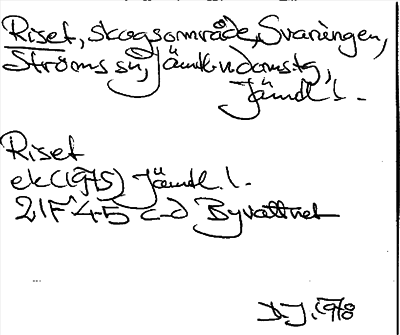 Riset, skogsområde, Svaningen,
Ströms sn, Jämtlands tg,
Jämtl. l.
Riset
ek (1975) Jämtl. l.
21F 4-5 c-d Byvattnet
D.J. 1978